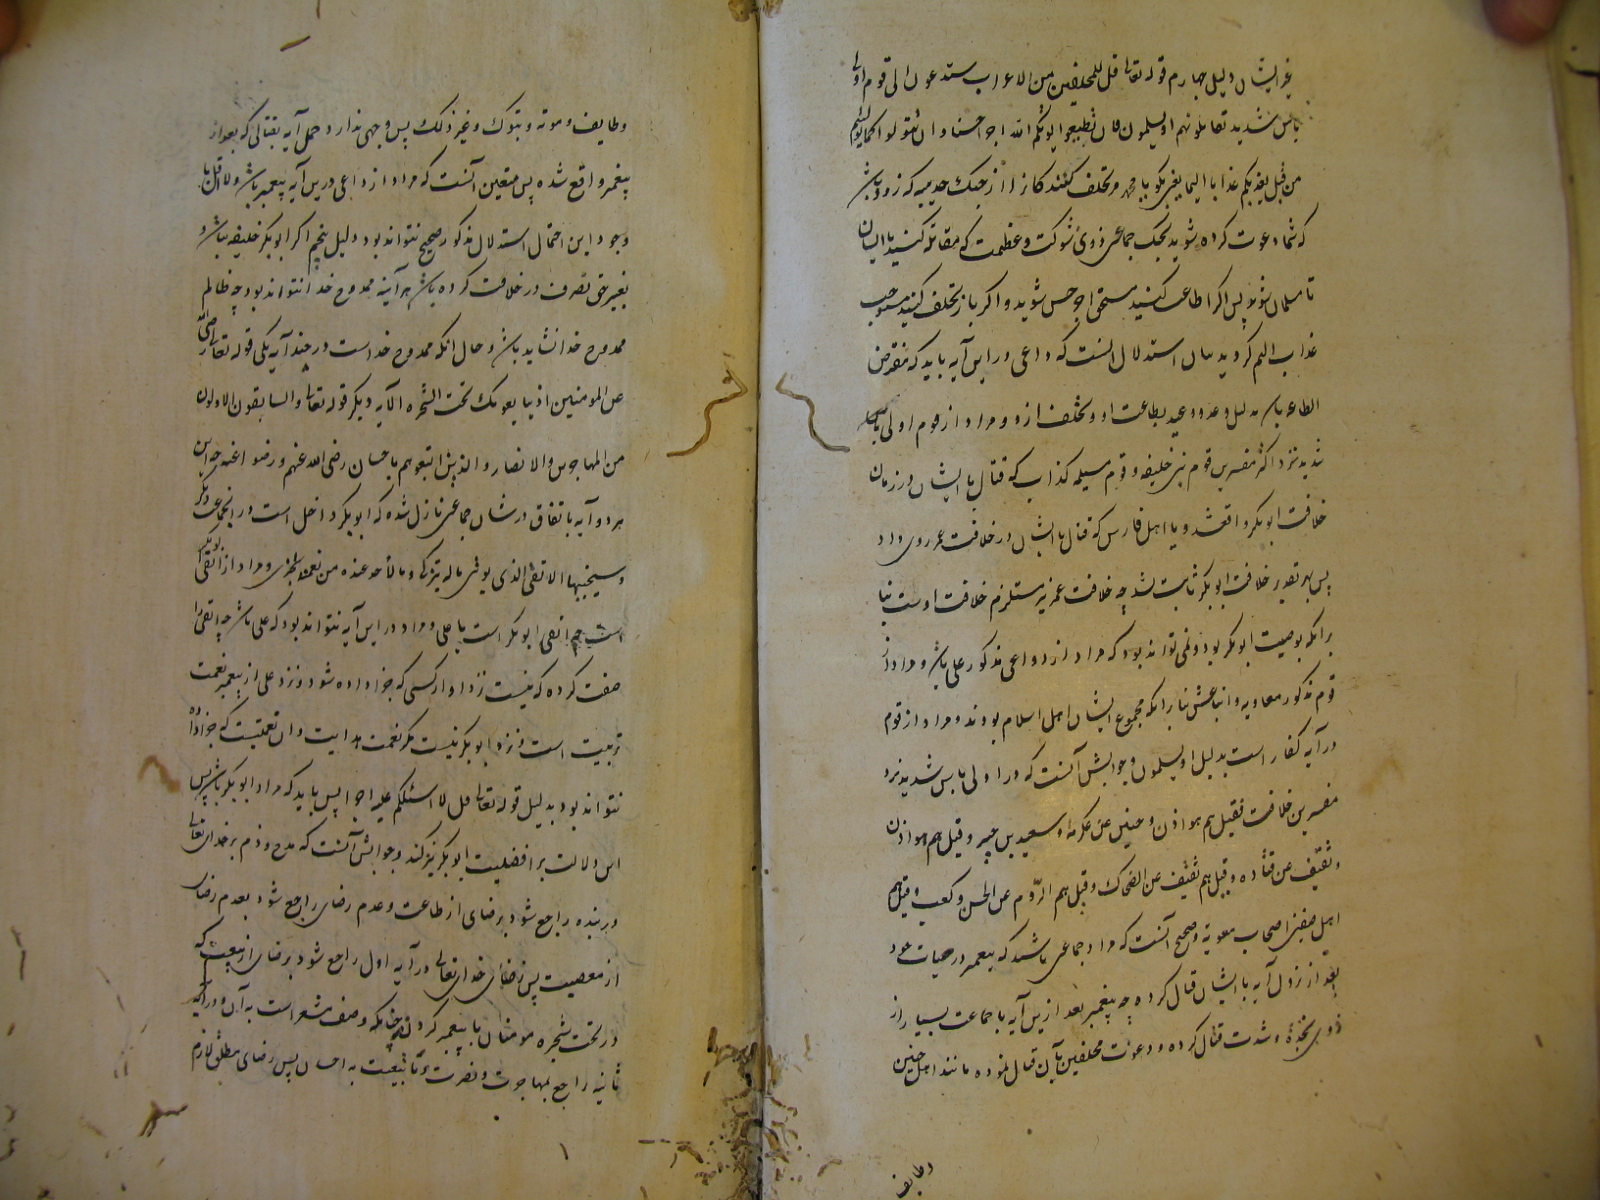 غیر ایشان دلیل چهارم قوله تعالی قل للمخلفین من الاعراب ستدعون الی قوم اولی
باس شدید تقاتلونهم او یسلمون فان تطیعوا یوتکم الله اجرا حسنا وان تتولوا کما تولیتم
من قبل یعذبکم عذابا الیما یعنی بگو یا محمد مر تخلف کنندکانرا از جنک حدیبیه که زود باشد
که شما دعوت کرده شوید بجنک جماعتی ذوی شوکت و عظمت که مقاتله کنید با ایشان
تا مسلمان شوند پس اکر اطاعت کنید مستحق اجر حسن شوید و اکر باز تخلف کنید مستوجب
عذاب الیم کردید بیان استدلال آنست که داعی در این آیه باید که مفترض
الطاعه باشد بدلیل وعد و وعید بطاعت او و تخلف ازو و مراد از قوم اولی باس
شدید نزد اکثر مفسرین قوم بنی حنیفه و قوم مسیلمه کذاب که قتال با ایشان در زمان
خلافت ابوبکر واقعشد و یا اهل فارس که قتال با ایشان در خلافت عمر روی داد
پس بهر تقدیر خلافت ابوبکر ثابت شد چه خلافت عمر نیز مستلزم خلافت اوست بنا
برانکه بوصیت ابوبکر بود و نمی تواند بود که مراد از داعی مذکور علی باشد و مراد از
قوم مذکور معاویه و اتباعش بنا برانکه مجموع ایشان اهل اسلام بودند و مراد از قوم
در آیه کفار است بدلیل او یسلمون و جوابش آنست که در اولی باس شدید نزد
مفسرین خلافست فقیل هم هوازن و حنین عن عکرمه و سعید بن جبیر و قیل هم هوازن
و ثقیف عن قتاده و قیل هم ثقیف عن الضحاک و قیل هم الروم عن الحسن و کعب و قیل هم
اهل صفین اصحاب معویة و صحیح آنست که مراد جماعتی باشند که پیغمبر در حیات خود
بعد از نزول آیه با ایشان قتال کرده چه پیغمبر بعد ازین آیه با جماعت بسیار از
ذوی نجدة و شدت قتال کرده و دعوت مخلفین بآن قتال نموده مانند اهل حنین
وطایف
وطایف و موته و تبوک و غیر ذلک پس وجهی ندارد حمل آیه بقتالی که بعد از
پیغمبر واقع شده پس متعین آنست که مراد از داعی درین آیه پیغمبر باشد ولا اقل با
وجود این احتمال استدلال مذکور صحیح نتواند بود دلیل پنجم اکر ابوبکر خلیفه نباشد و
بغیر حق تصرف در خلافت کرده باشد هر آینه ممدوح خدا نتواند بود چه ظالم
ممدوح خدا نشاید بان و حال انکه ممدوح خداست در چند آیه یکی قوله تعالی رضی الله
عن المومنین اذ یبایعونک تحت الشجره الآیه دیکر قوله تعالی والسابقون الاولون
من المهاجرین والانصار والذین اتبعوهم باحسان رضی الله عنهم و رضوا عنه چه این
هر دو آیه باتفاق در شان جماعتی نازل شده که ابوبکر داخل است در انجماعت دیکر
وسیجنبها الاتقی الذی یوتی ماله یتزکی وما لاحد عنده من نعمة تجزی و مراد از اتقی ابوبکر
است چه اتقی ابوبکر است یا علی و مراد در این آیه نتواند بود که علی باشد چه اتقی را
صفت کرده که نیست نزد او از کسی که جزا داده شود و نزد علی از پیغمبر نعمت
تربیت است و نزد ابوبکر نیست مکر نعمت هدایت و ان نعمتیست که جزا داده
نتواند بود بدلیل قوله تعالی قل لا اسئلکم علیه اجرا پس باید که مراد ابوبکر باشد پس
این دلالت بر افضلیت ابوبکر نیز کند و جوابش آنست که مدح و ذم بر خدای تعالی
در بنده راجع شود برضای از طاعت و عدم رضای راجع شود بعدم رضای
از معصیت پس رضای خدای تعالی در آیه اول راجع شود برضای از بیعت که
در تحت شجره مومنان با پیغمبر کردن چنانکه وصف مشعر است به آن و در آیه
ثانیه راجع بمهاجرت و نصرت و تابعیت به احسان پس رضای مطلق لازم